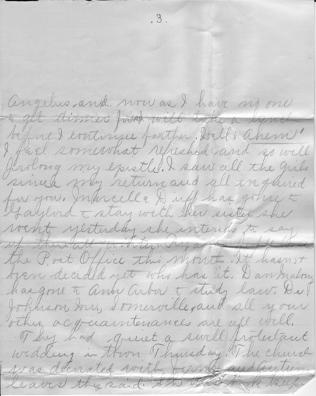 .3.
Angelus, and now as I have no one
to get dinner for I will take a lunch
before I continue further. Well "Ahem"
I feel somewhat refreshed and so will
prolong my epistle. I saw all the Girls
since my return and all inquired
for you. Marcella Duff has gone to
Gaylord to stay with her sister she
went yesterday she intends to stay
up there all
the Post Office this month. It hasn't
been decided yet who has it. Dan
has gone to Ann Arbor to study law. Del
Johnson, Somerville, and all your
other acquaintances are all well.
They had quiet a swell protestant
wedding in town Thursday. The church
was decorated with and Autumn
leaves they said.